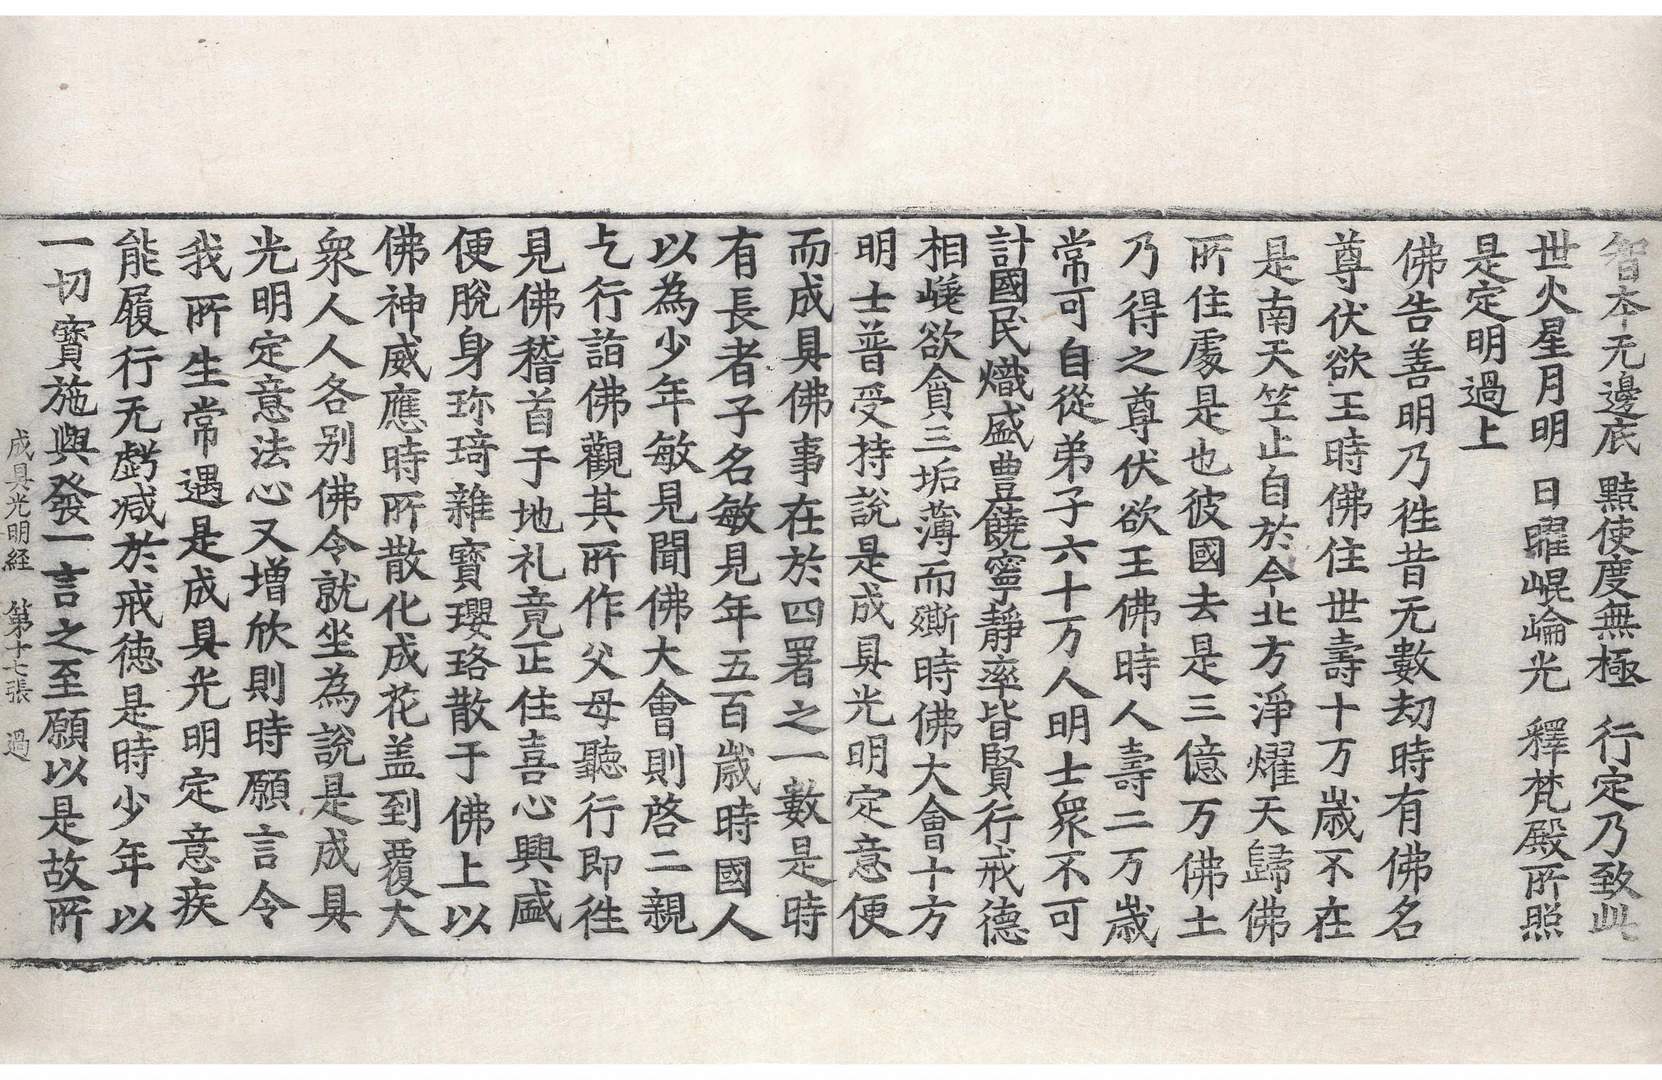 智本无邊底 黠使度無極 行定乃致此
世火星月明 日曜崐崘光 釋梵殿所照
是定明過上
佛告善明乃徃昔无數劫時有佛名
尊伏欲王時佛住世壽十万歲不在
是南天竺止自於今北方淨燿天歸佛
所住處是也彼國去是三億万佛土
乃得之尊伏欲王佛時人壽二万歲
常可自從弟子六十万人明士衆不可
計國民熾盛豊饒寧靜率皆賢行戒德
相嶤欲貪三垢薄而㒋時佛大會十方
明士普受持說是成具光明定意便
而成具佛事在於四署之一數是時
有長者子名敏見年五百歲時國人
以為少年敏見聞佛大會則啓二親
乞行詣佛觀其所作父母聽行即徃
見佛稽首于地礼竟正住喜心興盛
便脫身珎琦雜寳瓔珞散于佛上以
佛神威應時所散化成花盖到覆大
衆人人各别佛令就坐為說是成具
光明定意法心又增欣則時願言令
我所生常遇是成具光明定意疾
能履行无虧减於戒徳是時少年以
一切寳施與發一言之至願以是故所
成具光明経 第十七張 過